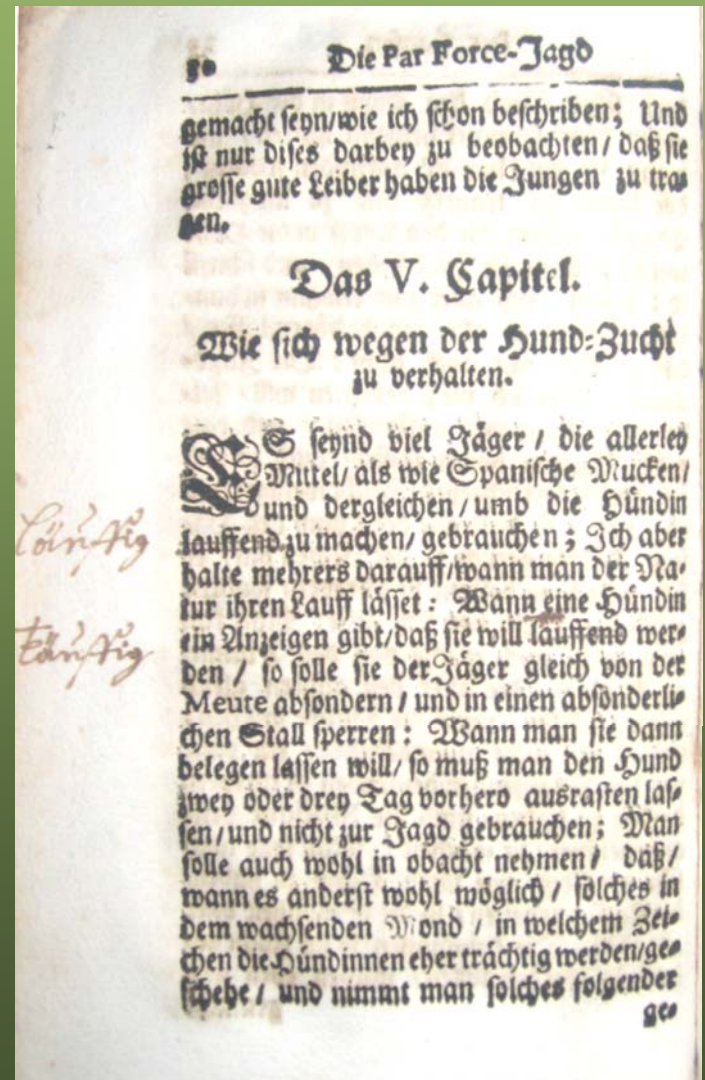 30 Die Par Force-Jagd
gemacht seyn/wie ich schon beschriben; Und
ist nur dises darbey zu beobachten/ daß sie
grosse gute Leiber haben die Jungen zu tra-
gen.
Das V. Capitel.
Wie sich wegen der Hund-Zucht
zu verhalten.
ES seynd viel Jäger / die allerley
Mittel/ als wie Spanische Mucken/
und dergleichen / umb die Hündin
lauffend zu machen/ gebrauchen ; Ich aber
läuffig
halte mehrers darauff/wann man der Na-
tur ihren Lauff lässet : Wann eine Hündin
ein Anzeigen gibt/daß sie will lauffend wer-
läuffig
den / so solle sie der Jäger gleich von der
Meute absondern / und in einen absonderli-
chen Stall sperren : Wann man sie dann
belegen lassen will/ so muß man den Hund
zwey oder drey Tag vorhero ausrasten las-
sen/und nicht zur Jagd gebrauchen; Man
solle auch wohl in obacht nehmen / daß /
wann es anderst wohl möglich / solches in
dem wachsenden Mond / in welchem Zei-
chen die Hündinnen eher trächtig werden/ge-
schehe / und nimmt man solches folgender
ge-